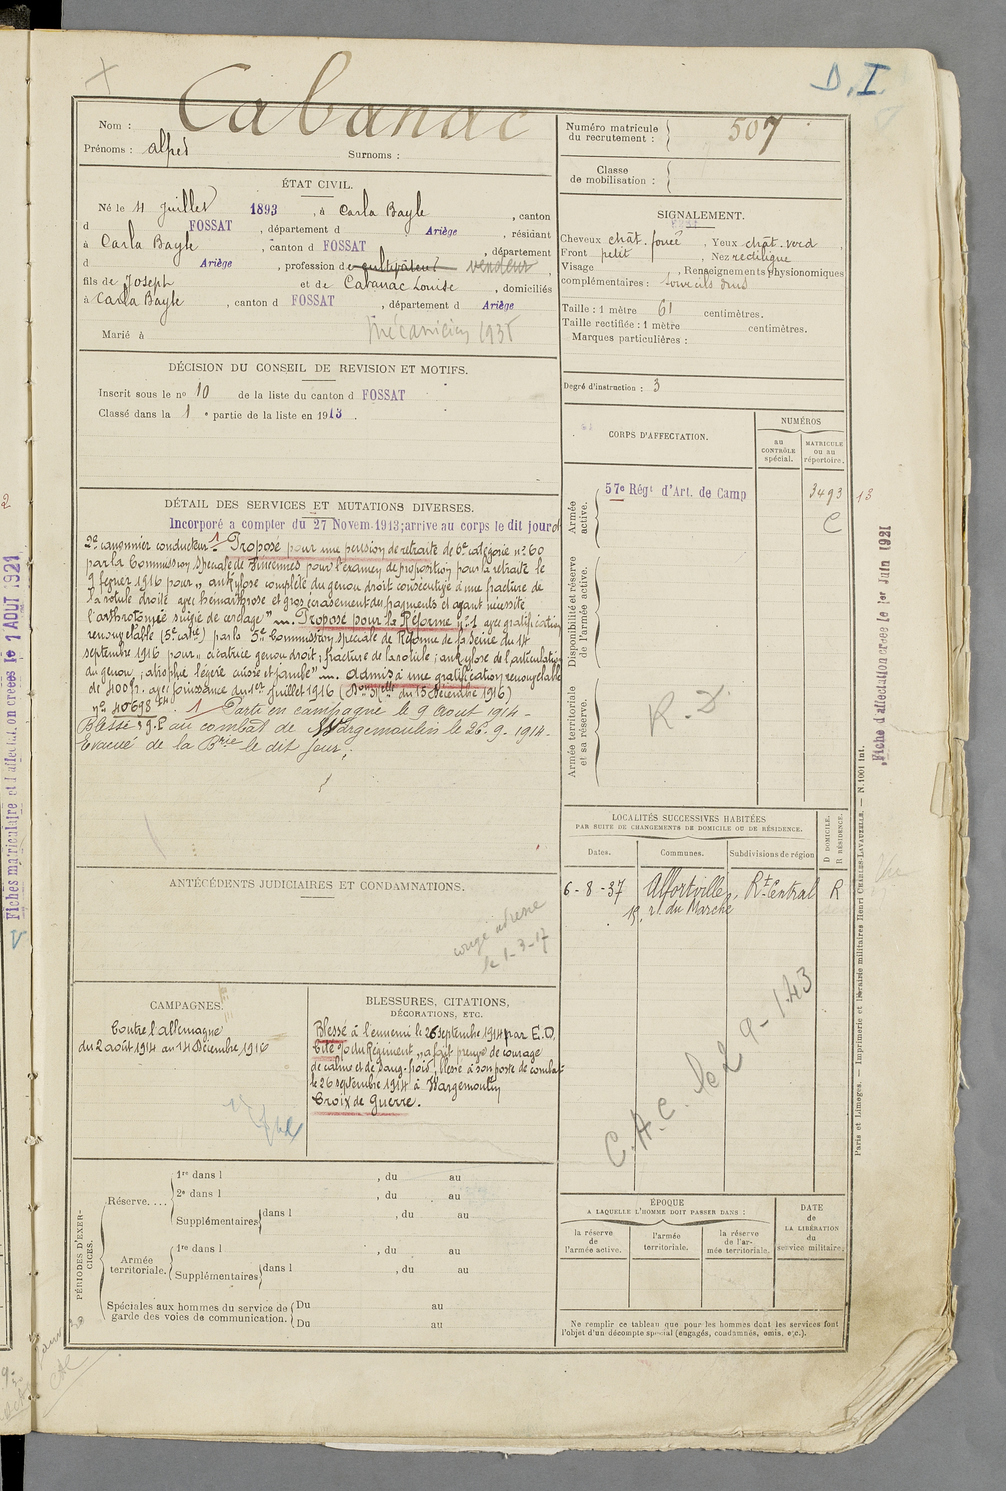 D. I.
Cabanac
Nom :
Prénoms : alfred
Surnoms :
Numéro matricule
du recrutement :
507
Classe
de mobilisation :
ÉTAT CIVIL.
Né le 4 juillet 1893, à Carla Bayle, canton
d FOSSAT, département d Ariège, résidant
à Carla Bayle, canton d FOSSAT, département
d Ariège, profession de cultivateur vendeur
fils de Joseph et de Cabanac Louise, domiciliés
à Carla Bayle, canton d FOSSAT, département d Ariège
Marié à
Mécanicien 1935
SIGNALEMENT.
Cheveux chât. foncé, Yeux chât. verd,
Front petit, Nez rectiligne
Visage, Renseignements physionomiques
complémentaires : sourcils drus
Taille : 1 mètre 61 centimètres.
Taille rectifiée : 1 mètre centimètres.
Marques particulières :
Degré d'instruction : 3
DÉCISION DU CONSEIL DE REVISION ET MOTIFS.
Inscrit sous le no 10 de la liste du canton d FOSSAT
Classé dans la 1e partie de la liste en 1913.
CORPS D'AFFECTATION.
NUMÉROS
AU CONTRÔLE spécial.
MATRICULE ou au répertoire.
Armée active.
57e Régt d'Art. de Camp
3493
13
C
Disponibilité et réserve de l'armée active.
Armée territoriale et sa réserve.
R. D.
DÉTAIL DES SERVICES ET MUTATIONS DIVERSES.
Incorporé a compter du 27 Novem. 1913; arrive au corps le dit jour et
2e canonnier conducteur. Proposé pour une pension de retraite de 6e catégorie no 60
par la Commission Spéciale de Vincennes pour l'examen de proposition pour la retraite le
9 février 1916 pour "ankylose complète du genou droit consécutive à une fracture de
la rotule droite avec hémarthrose et gros écrasement des fragments et ayant nécessité
l'arthrotomie suivie de cerclage". Proposé pour la Réforme no 1 avec gratification
renouvelable (5e catie) par la 5e Commission spéciale de Réforme de la Seine du 14
septembre 1916 pour : cicatrice genou droit ; fracture de la rotule ; ankylose de l'articulation
du genou ; atrophie légère cuisse et jambe". admis à une gratification renouvelable
de 400 fr. avec jouissance du 1er juillet 1916 (Don Mielle du 15 Décembre 1916)
no 40698. Parti en campagne le 9 Août 1914 -
Blessé au combat de Wargemoulin le 26-9-1914-
Evacué de la Brie le dit jour.
LOCALITÉS SUCCESSIVES HABITÉES
PAR SUITE DE CHANGEMENTS DE DOMICILE OU DE RÉSIDENCE.
D DOMICILE.
R RÉSIDENCE.
Dates.
Communes.
Subdivisions de région
6-8-37 Alfortville, Rt Central R
r. du Marché
C.A.C. le 2 9-143
ANTÉCÉDENTS JUDICIAIRES ET CONDAMNATIONS.
le 1-3-17
CAMPAGNES.
Contre l'allemagne
du 2 août 1914 au 14 Décembre 1916
BLESSURES, CITATIONS,
DÉCORATIONS, ETC.
Blessé à l'ennemi le 26 septembre 1914 par E.O.
Cité o/ du Régiment "a fait preuve de courage
de calme et de sang-froid, blessé à son poste de combat
le 26 septembre 1914 à Wargemoulin
Croix de Guerre.
PÉRIODES D'EXERCICES.
Réserve....
1re dans l , du au
2e dans l , du au
Supplémentaires dans l , du au
Armée territoriale.
1re dans l , du au
Supplémentaires dans l , du au
Spéciales aux hommes du service de
garde des voies de communication.
Du au
Du au
ÉPOQUE
A LAQUELLE L'HOMME DOIT PASSER DANS :
la réserve de l'armée active.
l'armée territoriale.
la réserve de l'armée territoriale.
DATE de LA LIBÉRATION du service militaire.
Ne remplir ce tableau que pour les hommes dont les services font
l'objet d'un décompte spécial (engagés, condamnés, omis, etc.).
Fiche d'affectation créée le 1er Juin 1921
Paris et Limoges. — Imprimerie et librairie militaires Henri CHARLES-LAVAUZELLE. — N. 1001 int.
Fiches matriculaire et d'affectation créées le 1 AOUT 1921